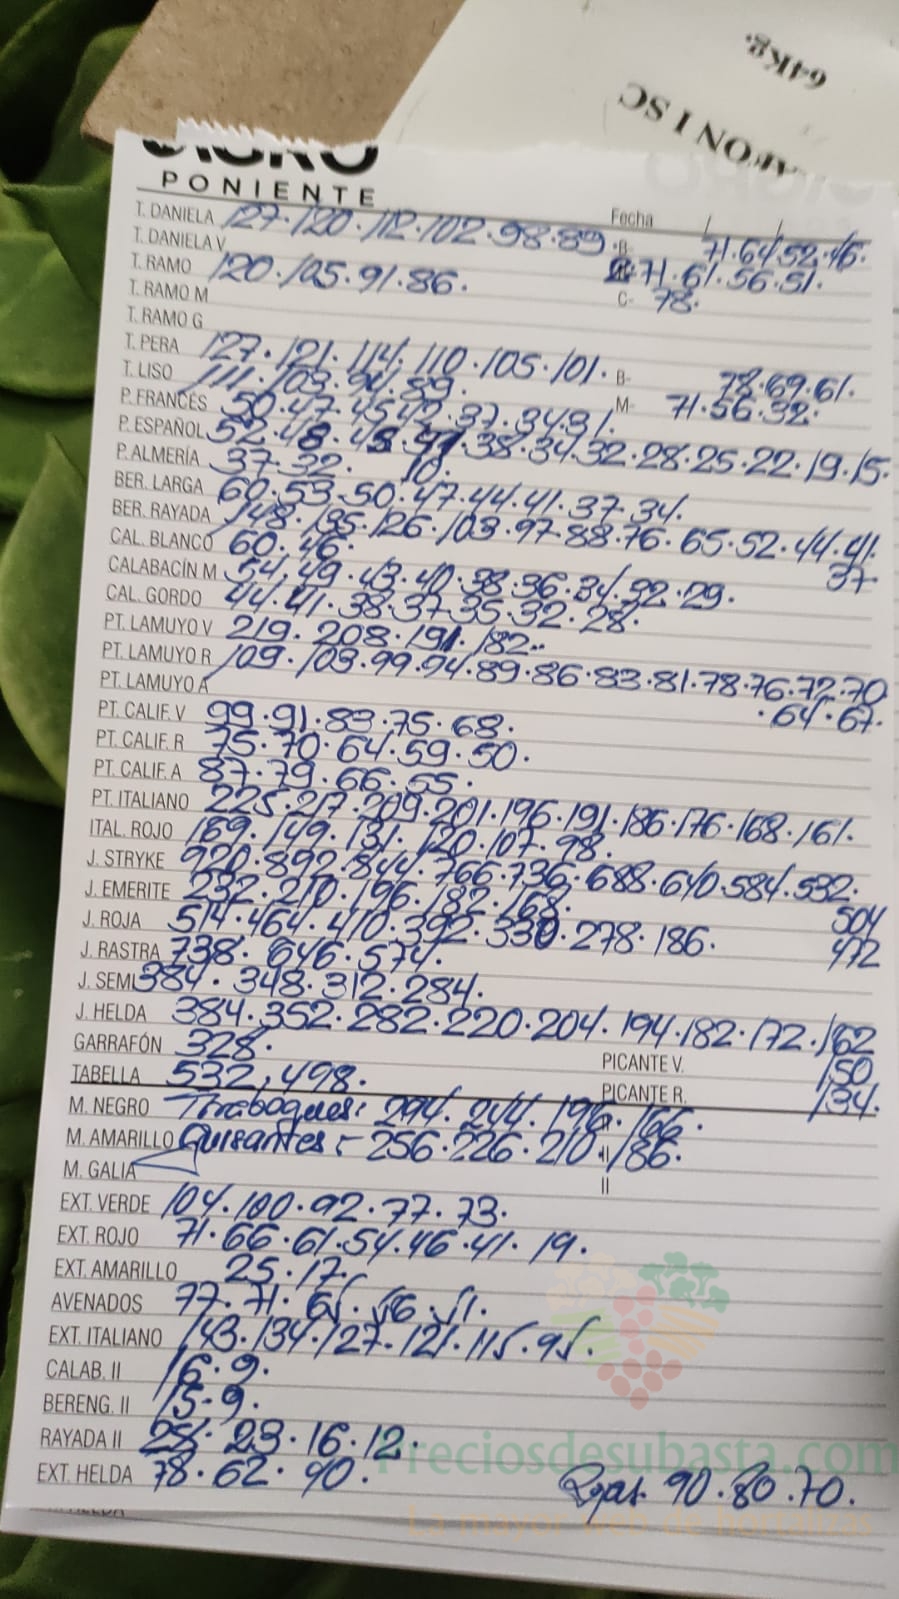 64Kg.
I SC
AGRO
PONIENTE
Fecha / /
T. DANIELA 127.120.112.102.98.89. B- 71.64/52.46.
T. DANIELA V 71.61.56.51.
T. RAMO 120.105.91.86. C- 78.
T. RAMO M
T. RAMO G
T. PERA 127.121.114.110.105.101. B- 78.69.61.
T. LISO 111.103.94.89. M- 71.56.32.
P. FRANCÉS 50.47.45.42.37.34.31.
P. ESPAÑOL 52.48.45.41.38.34.32.28.25.22.19.15.
P. ALMERÍA 37.32. 10.
BER. LARGA 60.53.50.47.44.41.37.34.
BER. RAYADA 148.135.126.103.97.88.76.65.52.44.41.
37
CAL. BLANCO 60.46.
CALABACÍN M 54,49.43.40.38.36.34.32.29.
CAL. GORDO 44.41.38.37.35.32.28.
PT. LAMUYO V 219.208.191.182..
PT. LAMUYO R 109.103.99.94.89.86.83.81.78.76.72.70
.64.67.
PT. LAMUYO A
PT. CALIF. V 99.91.83.75.68.
PT. CALIF. R 75.70.64.59.50.
PT. CALIF. A 87.79.66.55.
PT. ITALIANO 225.217.209.201.196.191.186.176.168.161.
ITAL. ROJO 149.131.120.107.98.
J. STRYKE 920.892.844.766.736.688.640.584.532.
504
472
J. EMERITE 232.210.196.182.168.
J. ROJA 514.464.410.392.330.278.186.
J. RASTRA 738.646.574.
J. SEMI 384.348.312.284.
J. HELDA 384.352.282.220.204.194.182.172.162
150
134.
GARRAFÓN 328.
PICANTE V.
TABELLA 532,498.
PICANTE R.
M. NEGRO Tirabeques: 294.244.196.166.
M. AMARILLO Guisantes:- 256.226.210.186.
M. GALIA II
EXT. VERDE 104.100.92.77.73.
EXT. ROJO 71.66.61.54.46.41.19.
EXT. AMARILLO 25.17.
AVENADOS 77.71.65.56.51.
EXT. ITALIANO 143.134.127.121.115.95.
CALAB. II 16.9.
BERENG. II 15.9.
RAYADA II 28.23.16.12.
EXT. HELDA 78.62.90.
Rojas. 90.80.70.
Preciosdesubasta.com
La mayor web de hortalizas